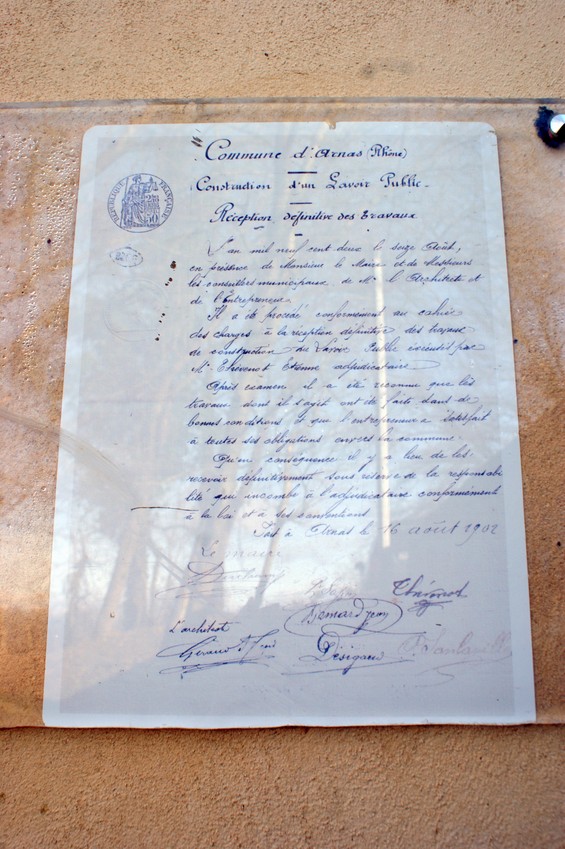 Commune d'Arnas (Rhône)
Construction d'un Lavoir Public.
Réception définitive des Travaux
RÉPUBLIQUE FRANÇAISE
L'an mil neuf cent deux le seize Août,
en présence de Monsieur le Maire et de Messieurs
les conseillers municipaux, de Mr l'Architecte et
de l'Entrepreneur.
Il a été procédé conformément au cahier
des charges à la réception définitive des travaux
de construction du Lavoir Public exécutés par
Mr Thévenot Etienne adjudicataire.
Après examen il a été reconnu que les
travaux dont il s'agit ont été faits dans de
bonnes conditions et que l'entrepreneur a satisfait
à toutes ses obligations envers la commune.
Qu'en conséquence il y a lieu de les
recevoir définitivement sous réserve de la responsabi
lité qui incombe à l'adjudicataire conformément
à la loi et à ses conventions.
Fait à Arnas le 16 août 1902
Le maire
Thévenot
Bernard Jean
L'architecte
Désigaud